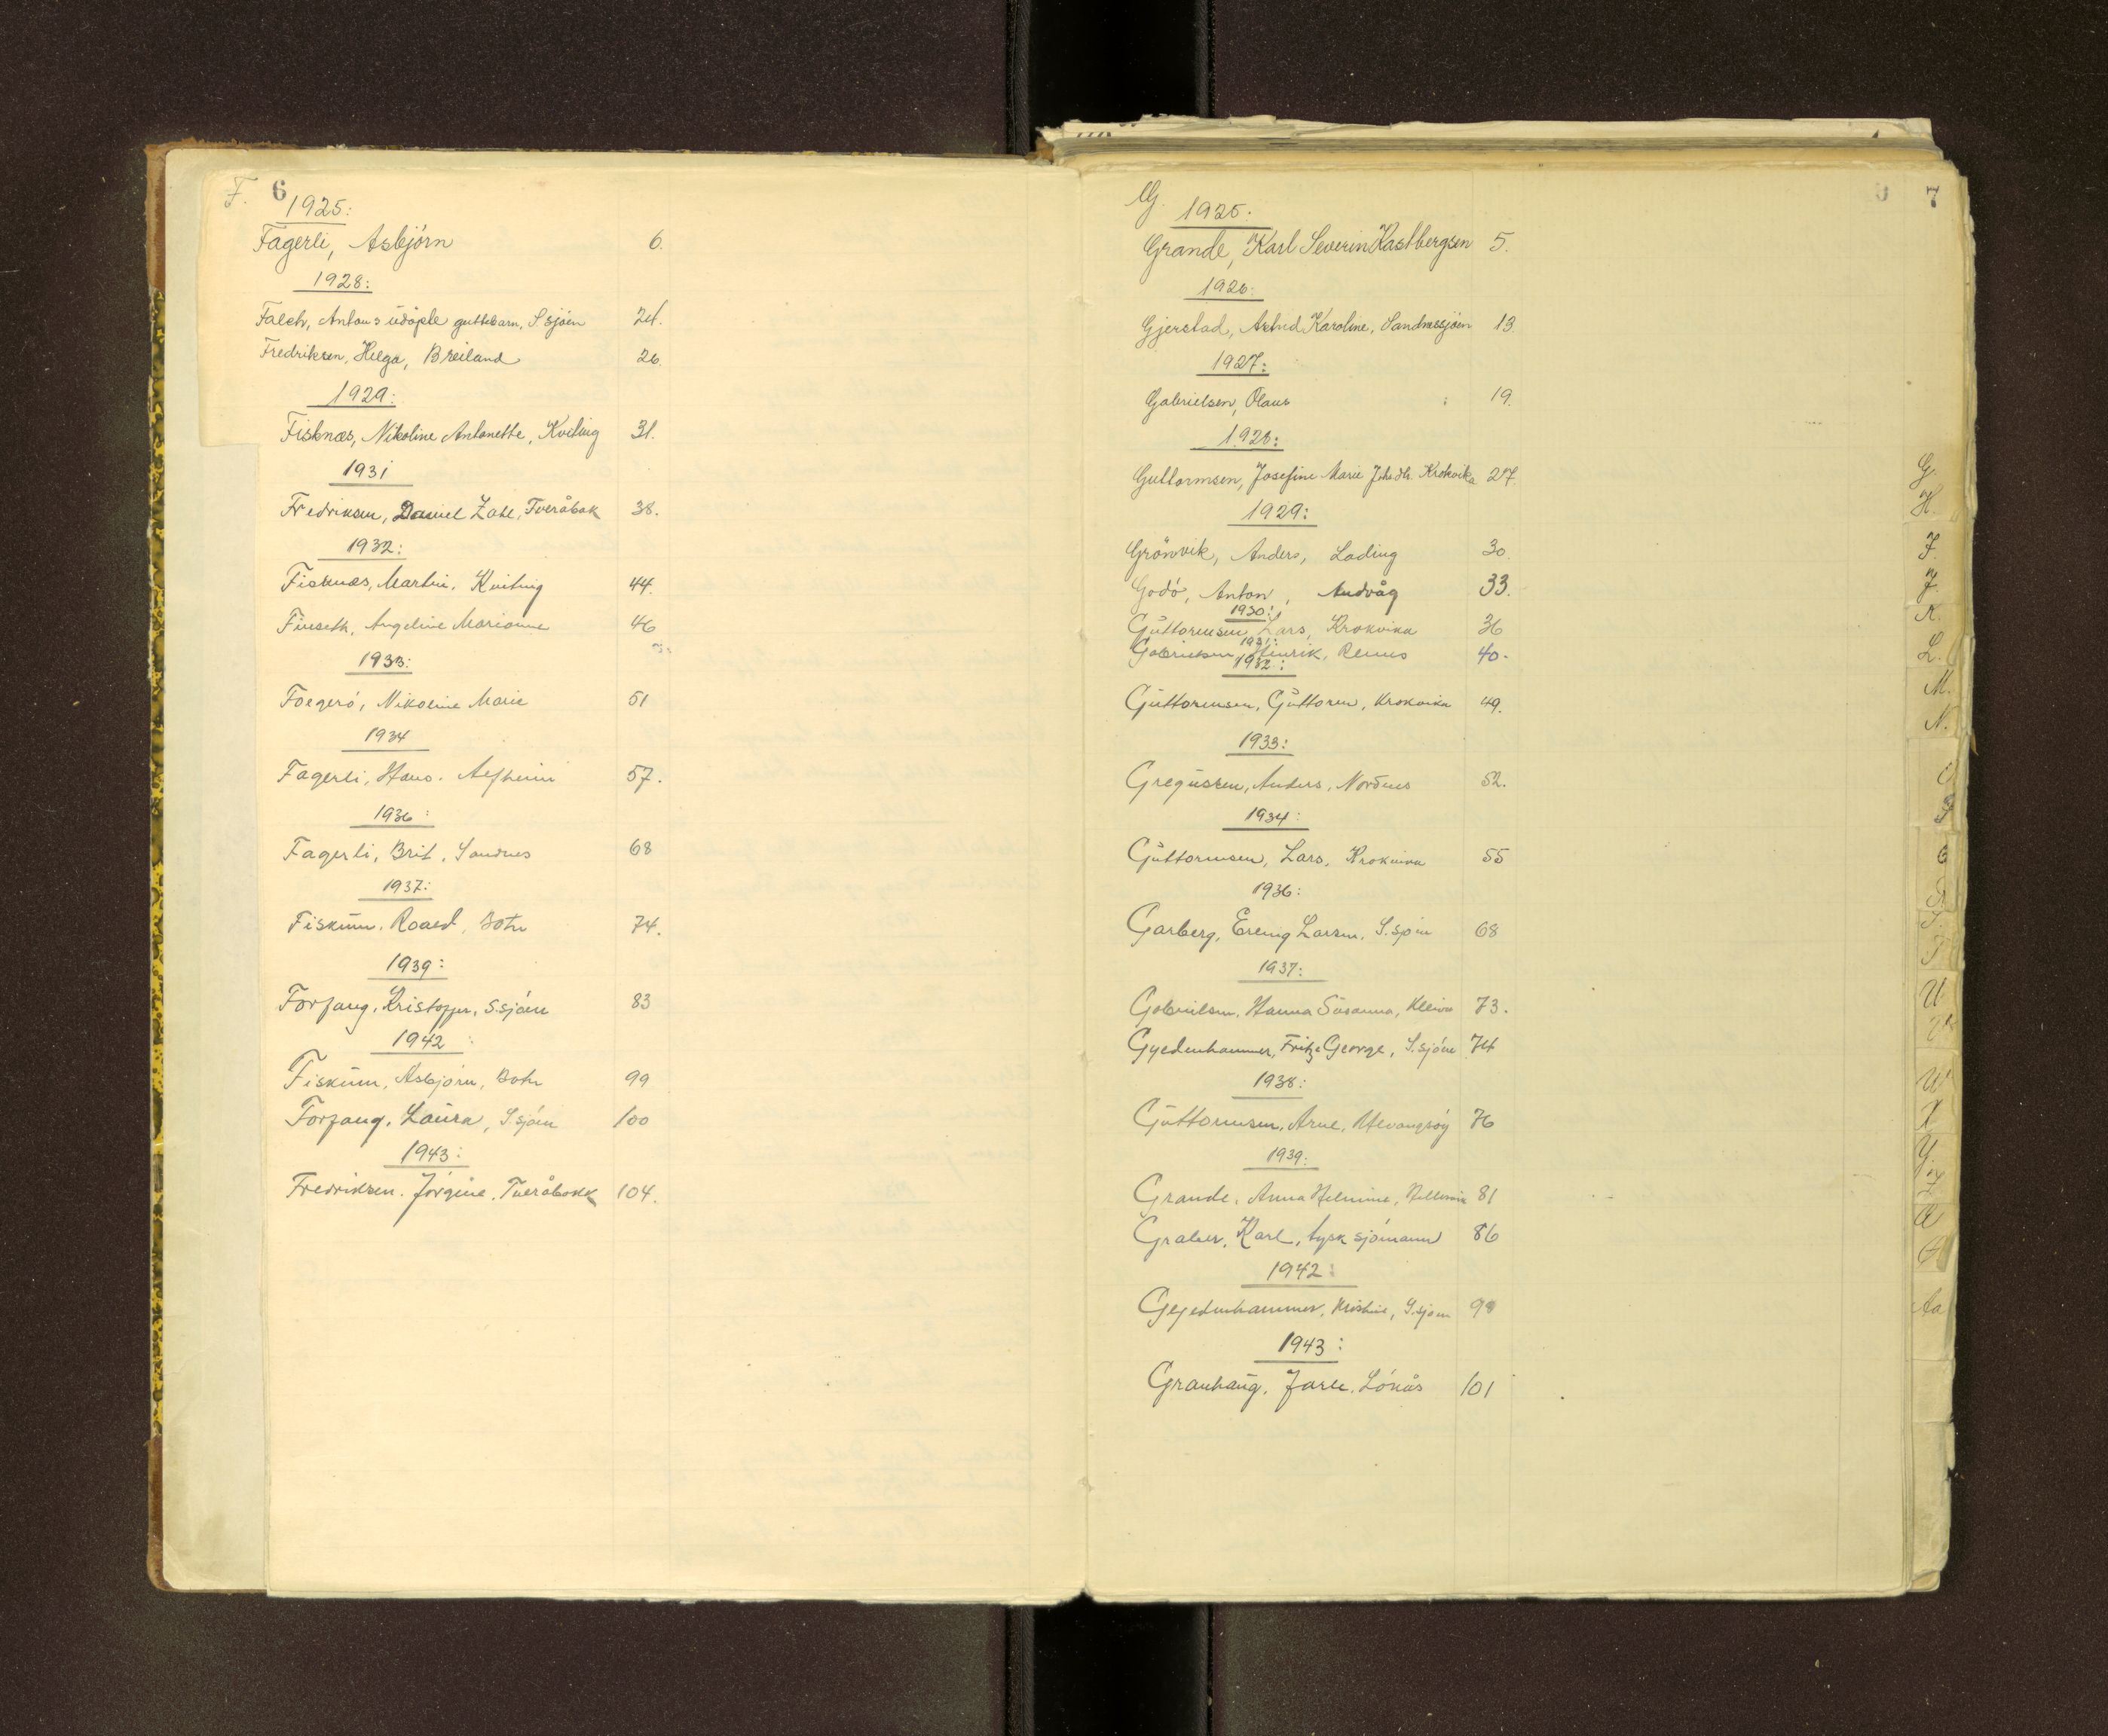 F. 6
1925:
Fagerli, Asbjörn 6.
1928:
Falch, Antons udöpte guttebarn, S.sjöen 24.
Fredriksen, Helga, Breiland 26.
1929:
Fisknæs, Nikoline Antonette, Kviting 31.
1931
Fredriksen, Daniel Zahl, Tveråbak 38.
1932:
Fisknæs, Martin, Kviting 44.
Finseth, Angeline Marianne 46
1933:
Foegerö, Nikoline Marie 51
1934
Fagerli, Hans. Alfheim 57.
1936:
Fagerli, Brit, Sandnes 68
1937:
Fiskum, Roald, Botn 74.
1939:
Forfang, Kristoffer, S.sjöen 83
1942
Fiskum, Asbjörn, Botn 99
Forfang, Laura, S.sjöen 100
1943:
Fredriksen. Jörgine. Tveråbakk 104.
G. 7
1925.
Grande, Karl Severin Kastbergsen 5.
1926:
Gjerstad, Astrid Karoline, Sandnessjöen 13.
1927:
Gabrielsen, Olaus 19.
1928:
Guttormsen, Josefine Marie Krokvika 27.
1929:
Grönvik, Anders, Lading 30.
Godö, Anton, Andvåg 33.
1930:
Guttormsen, Lars, Krokvika 36
1931:
Gabrielsen, Hinrik, Remnes 40.
1932:
Guttormsen, Guttorm, Krokvika 49.
1933:
Gregussen, Anders, Nordnes 52.
1934:
Guttormsen, Lars, Krokvika 55
1936:
Garberg, Erling Larsen, S.sjöen 68
1937:
Gabrielsen, Hanna Susanna, Kleiva 73.
Gyldenhammer, Fritz George, S.sjöen 74
1938:
Guttormsen, Arne, 76
1939:
Grande, Anna Helmine, 81
Graber, Karl, tysk sjömann 86
1942:
Gyldenhammer, Kristine, S.sjöen 99
1943:
Granhaug, Jarle, Lönås 101
G.
H.
I.
J.
K.
L.
M.
N.
O
P
Q
R
S.
T
U
V
W
X
Y
Z
Æ
Ø
Aa